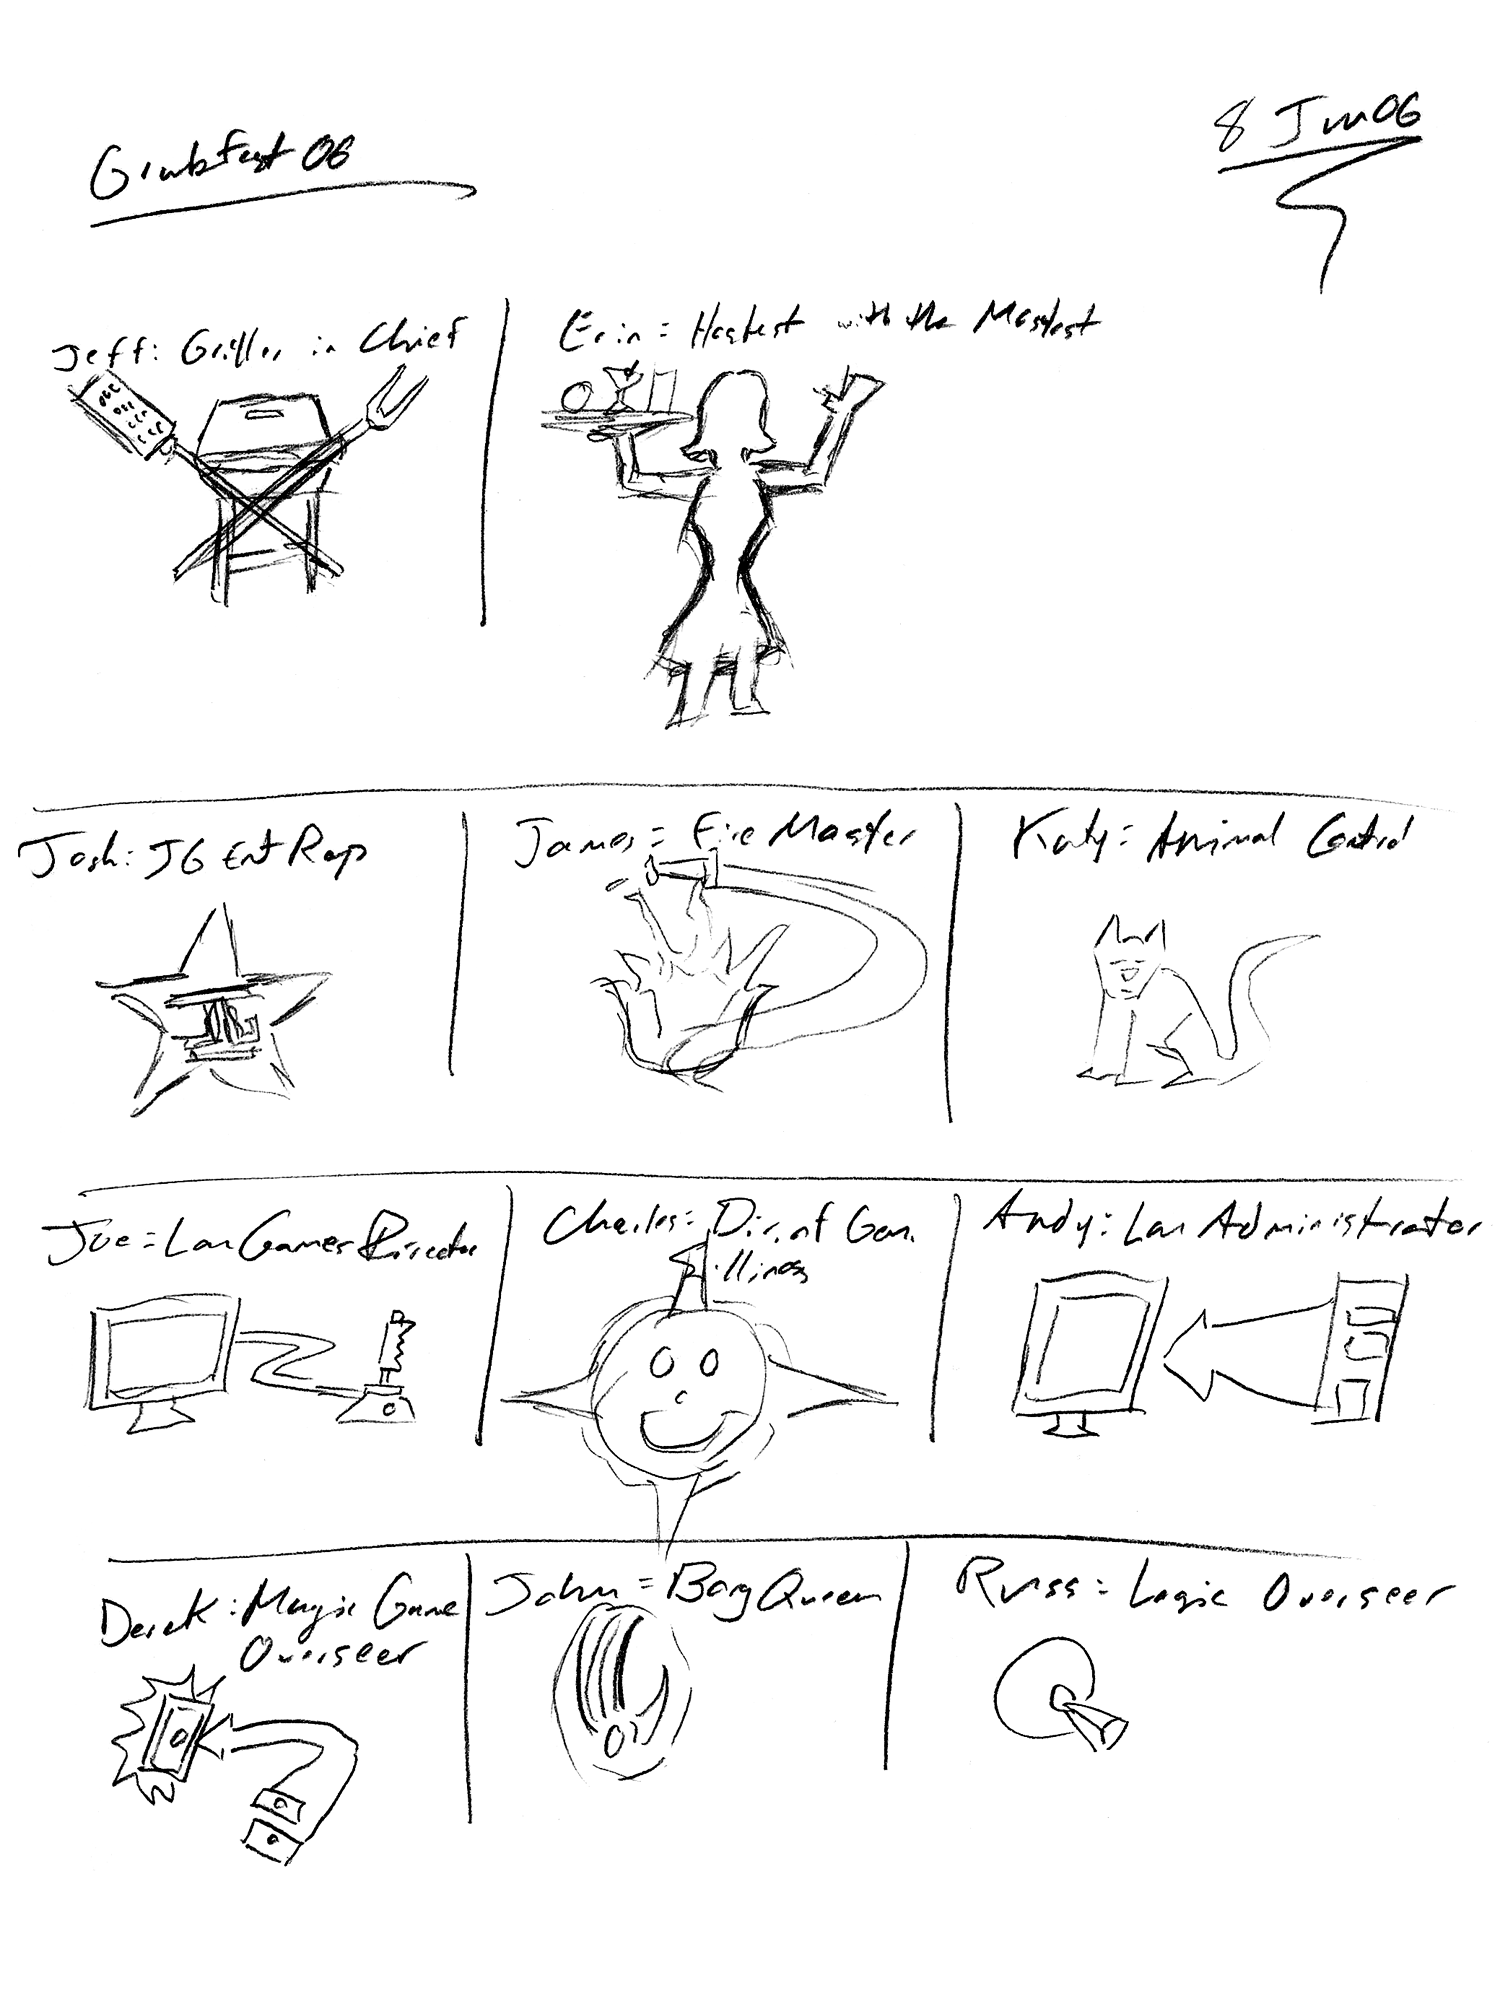 Grubfest 06
8 Jun 06
Jeff: Griller in Chief
Erin = Hostest with the Mostest
Josh: JG Ent Rep
James = Fire Master
Katy: Animal Control
Joe = Lan Games Director
Charles: Dir. of Gen.
illiness
Andy: Lan Administrator
Derek: Magic Game
Overseer
John = Borg Queen
Russ: Logic Overseer